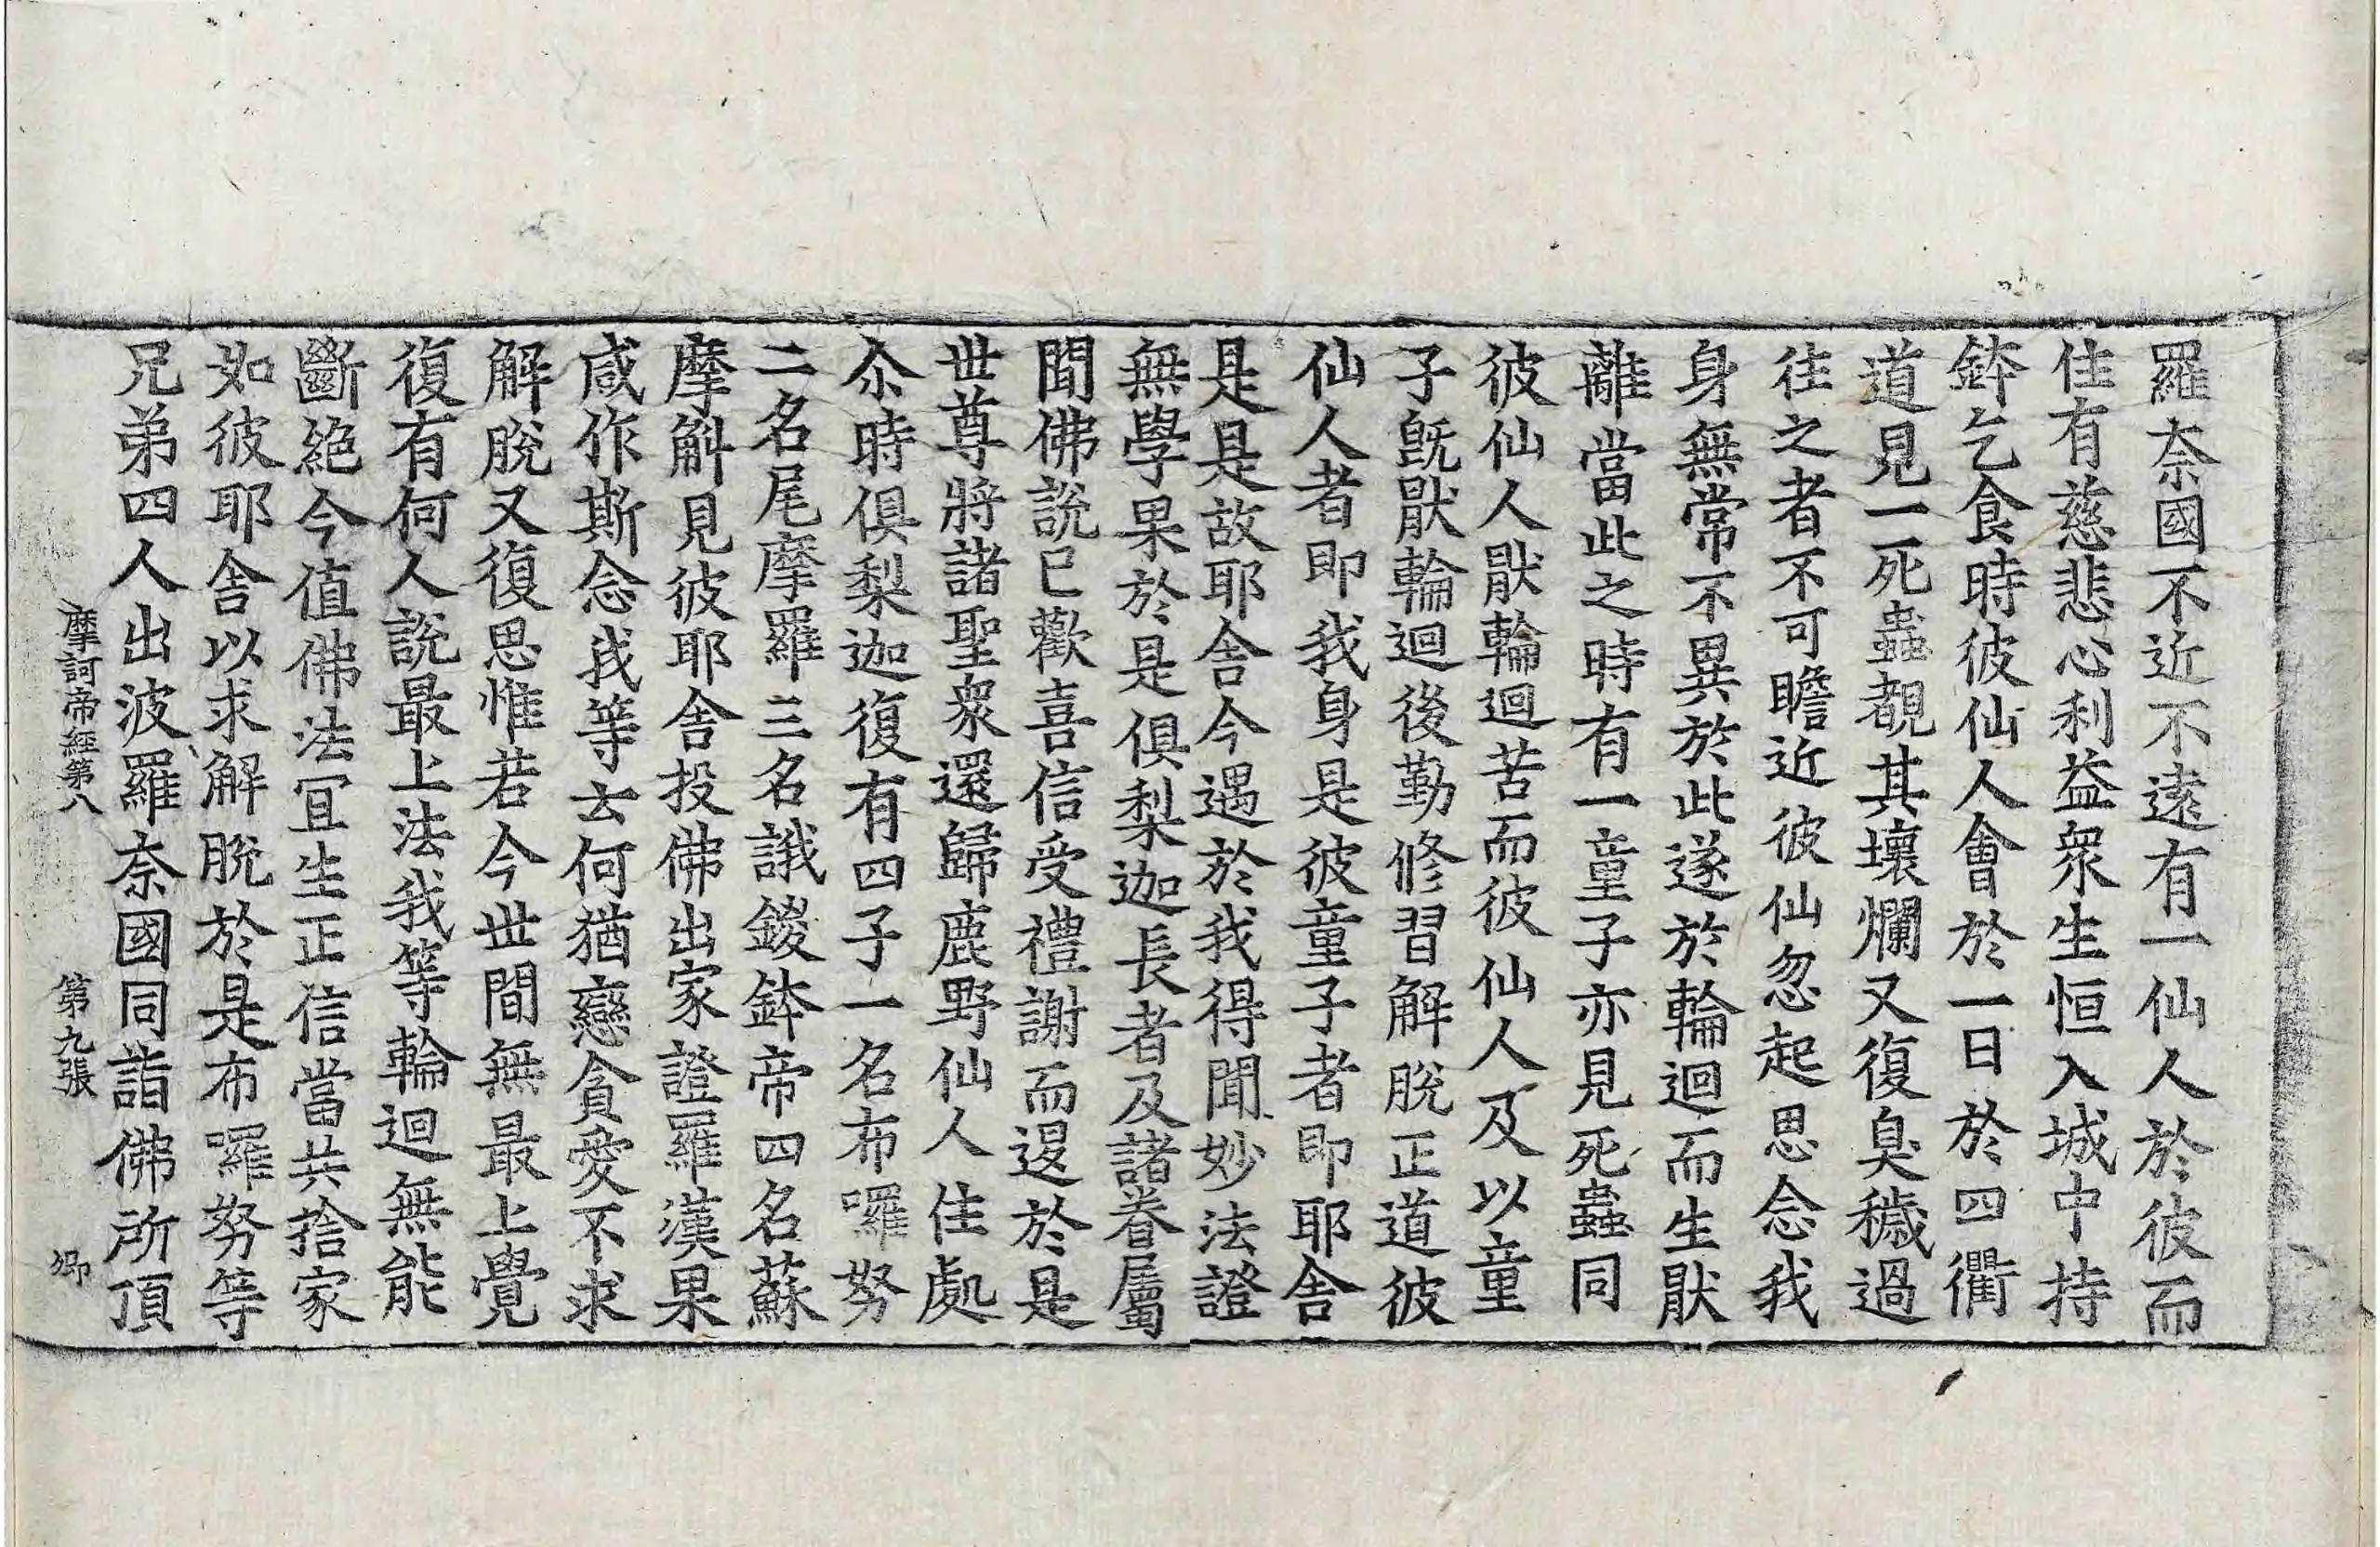 羅奈國不近不遠有一仙人於彼而
住有慈悲心利益衆生恒入城中持
鉢乞食時彼仙人會於一日於四衢
道見一死蟲覩其壞爛又復臭穢過
往之者不可瞻近彼仙忽起思念我
身無常不異於此遂於輪迴而生猒
離當此之時有一童子亦見死蟲同
彼仙人猒輪迴苦而彼仙人及以童
子旣猒輪迴後勤修習解脫正道彼
仙人者即我身是彼童子者即耶舎
是是故耶舎今遇於我得聞妙法證
無學果於是俱梨迦長者及諸眷屬
聞佛說已歡喜信受禮謝而退於是
世尊將諸聖衆還歸鹿野仙人住處
尒時俱梨迦復有四子一名布囉努
二名尾摩羅三名誐鑁鉢帝四名蘇
摩斛見彼耶舎投佛出家證羅漢果
咸作斯念我等去何猶戀貪愛不求
解脫又復思惟若今世間無最上覺
復有何人說最上法我等輪迴無能
斷絕今值佛法宜生正信當共捨家
如彼耶舎以求解脫於是布囉努等
兄弟四人出波羅奈國同詣佛所頂
摩訶帝經第八 第九張 卿